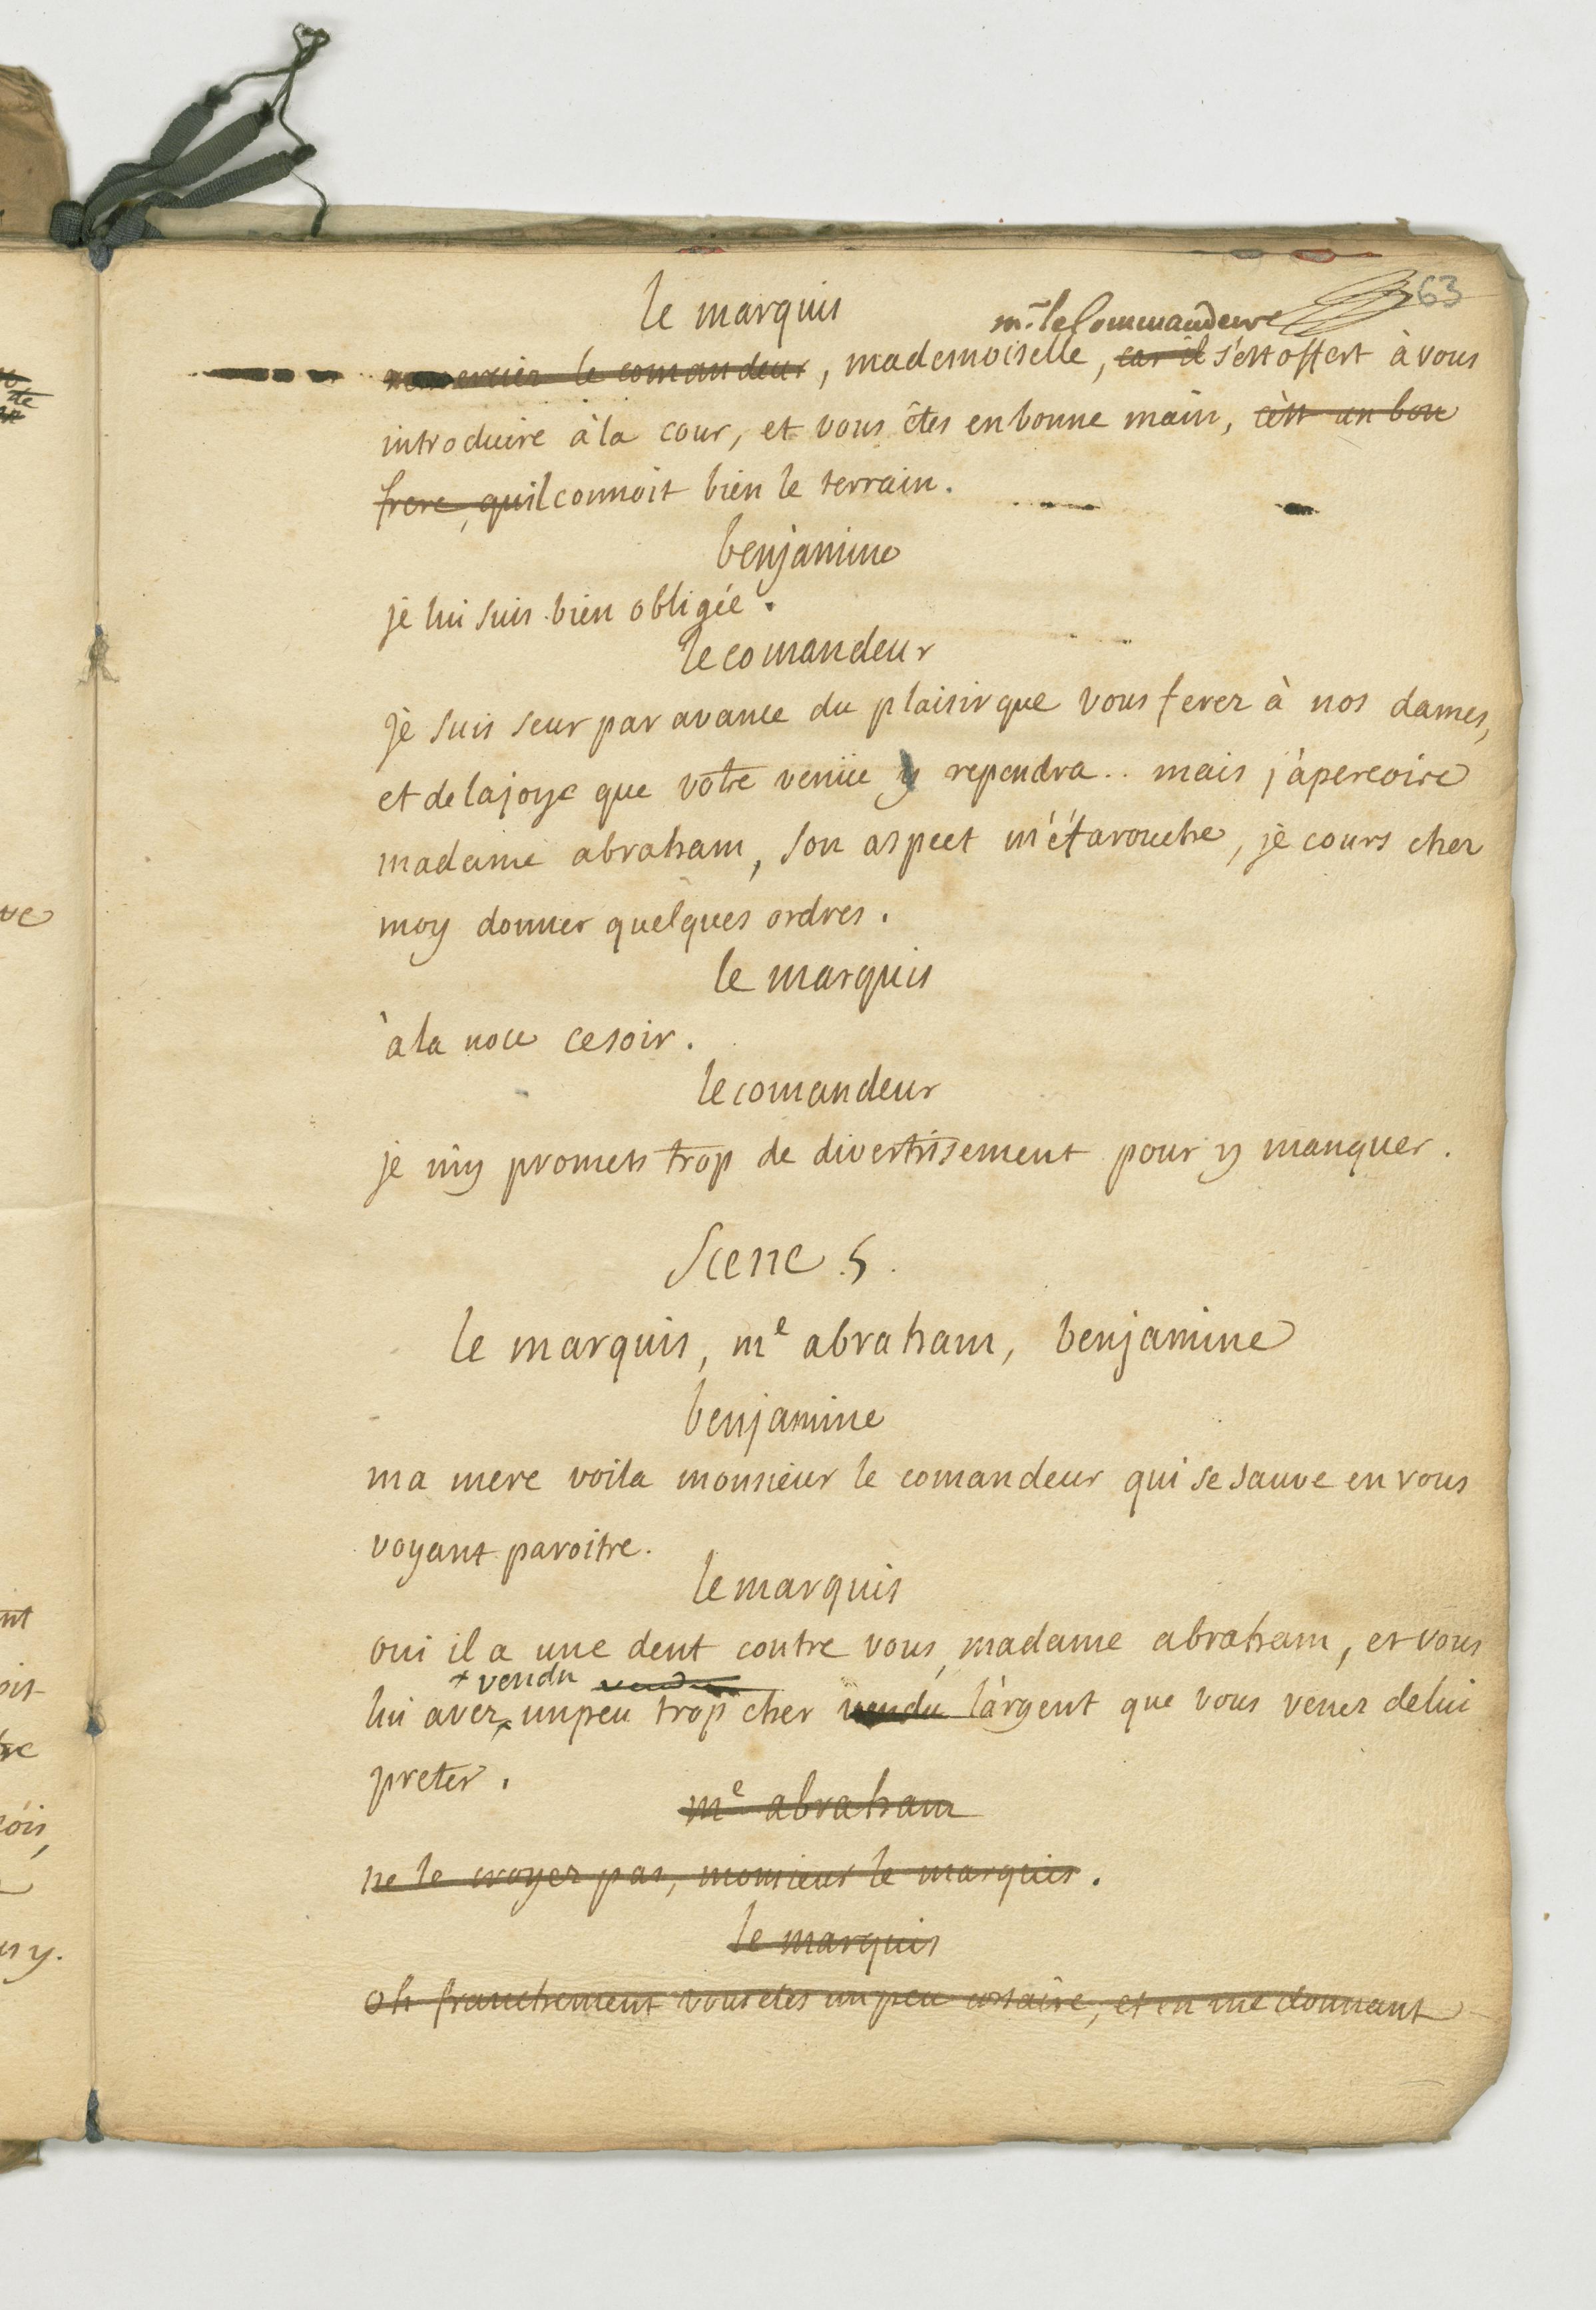 63
le marquis
mr. le Commandeur
remercier le comandeur, mademoiselle, car il s'est offert à vous
introduire à la cour, et vous êtes en bonne main, c'est un bon
frere, qu il connoit bien le terrain.
benjamine
je lui suis bien obligée.
le comandeur
je suis seur par avance du plaisir que vous ferez à nos dames,
et de la joye que votre venüe y rependra.. mais j'apercoive
madame abraham, son aspect m'éfarouche, je cours chez
moy donner quelques ordres.
le marquis
à la noce ce soir.
le comandeur
je m'y promets trop de divertisement pour y manquer.
Scene 5.
le marquis, me abraham, benjamine
benjamine
ma mere voila monsieur le comandeur qui se sauve en vous
voyant paroitre.
le marquis
oui il a une dent contre vous, madame abraham, et vous
+ vendu vendu
lui avez un peu trop cher vendu l'argent que vous venez de lui
preter.
me abraham
ne le croyez pas, monsieur le marquis.
le marquis
oh franchement vous etes un peu corsaire, et en me donnant